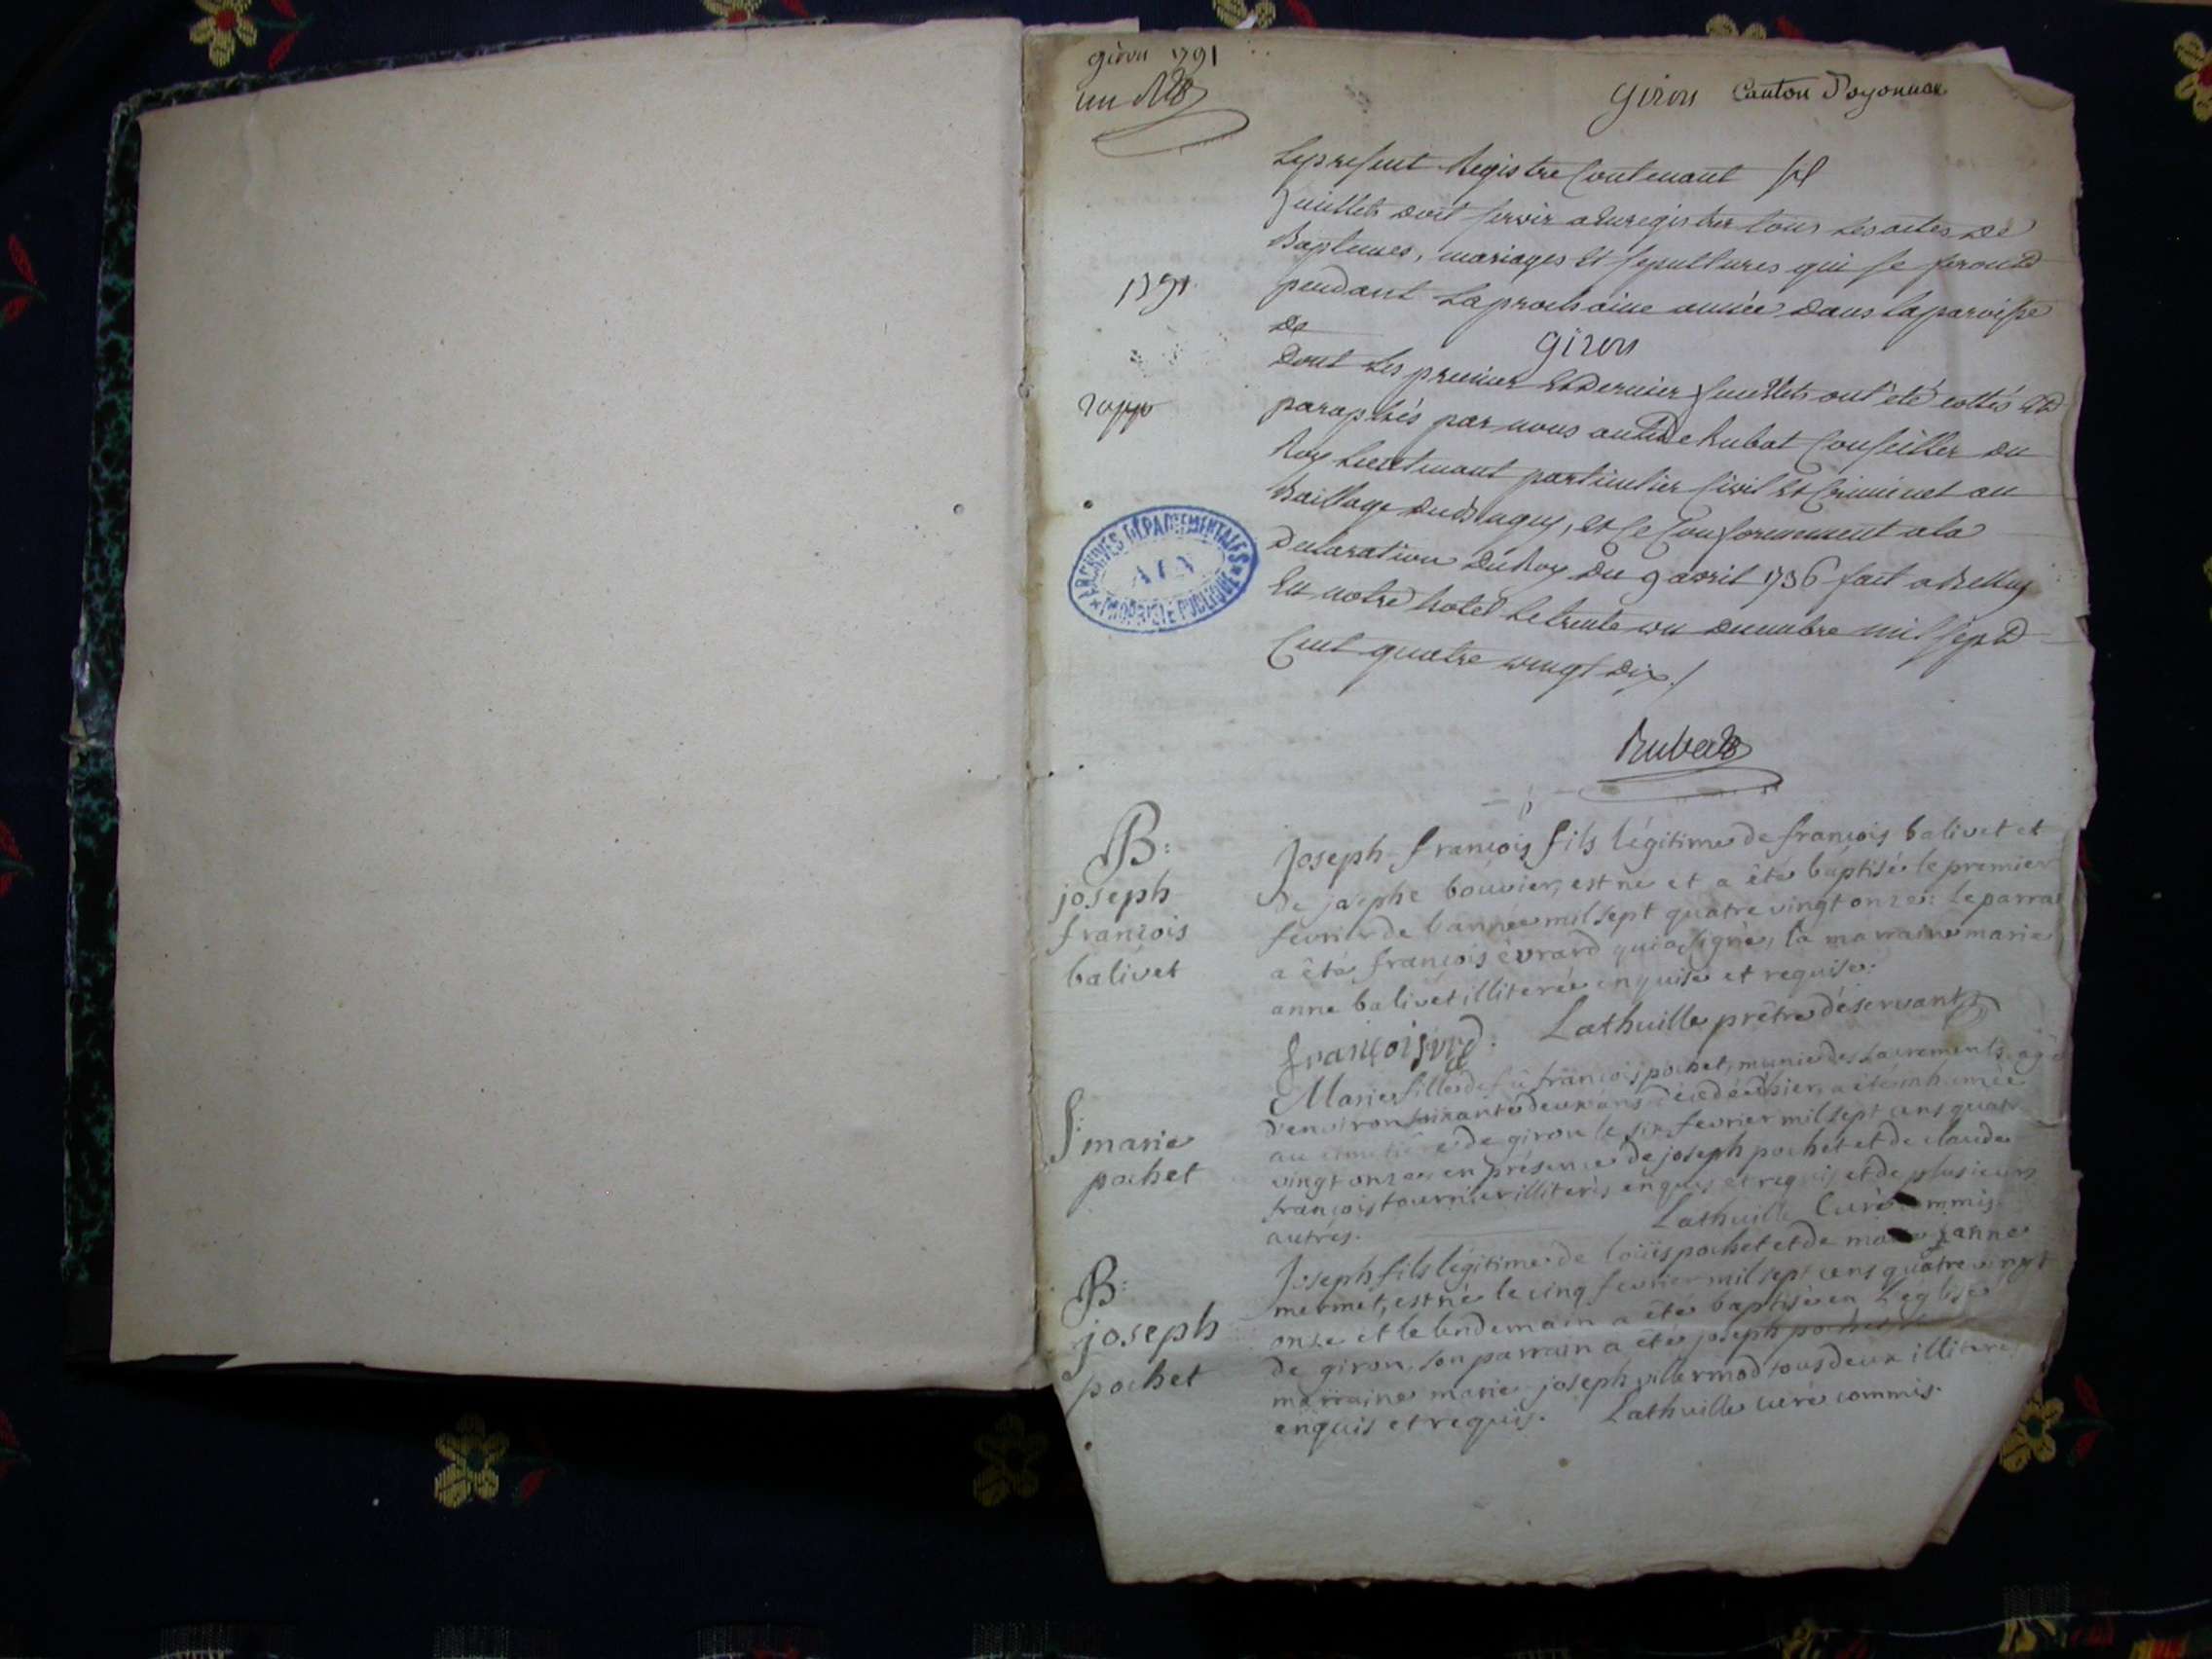 giron 1791
un
Giron Canton d'oyonnax
Le present Registre Contenant six
feuillets doit servir a Enregistrer tous Les actes de
Baptemes, mariages Et sepultures qui se feront
1791
pendant La prochaine année dans la paroisse
de
Giron
dont Les premier Et dernier feuillets ont été cottés Et
paraphés par nous Rubat Conseiller du
Roy Lieutenant particulier Civil Et Criminel au
Baillage du Bugey, Et Ce Conformement a la
Declaration du Roy du 9 avril 1736 fait a Belley
En notre hotel Le trente un decembre mil sept
Cent quatre vingt dix./.
ARCHIVES DÉPARTEMENTALES
AIN
PROPRIÉTÉ PUBLIQUE
Rubat
B:
joseph
françois
balivet
Joseph françois fils légitime de françois balivet et
de josephe bouvier, est né et a été baptisé le premier
fevrier de l'année mil sept quatre vingt onze: le parrai
a été françois évrard qui a signé, la marraine marie
anne balivet illiterée enquise et requise.
françois Lathuille prêtre déservant
f: marie
pochet
Marie fille de fû françois pochet, munie des sacrements, agée
d'environ soixante deux ans décédée hier, a été inhumée
au cimetière de giron le six fevrier mil sept cens quatre
vingt onze en présence de joseph pochet et de claude
françois tournier illiterés enquis et requis et de plusieurs
autres. Lathuille Curé commis
B:
joseph
pochet
Joseph fils légitime de loüis pochet et de marie janne
mermet, est né le cinq fevrier mil sept cens quatre vingt
onze et le lendemain a été baptisé en L'église
de giron, son parrain a été joseph pochet
marraine marie joseph villermod tous deux illiterés
enquis et requis. Lathuille curé commis.